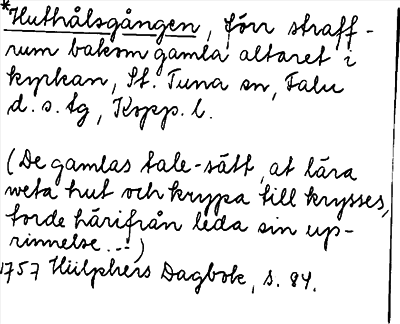 *Huthålsgången, förr straff-
rum bakom gamla altaret i
kyrkan, St. Tuna sn, Falu
d. s. tg, Kopp. l.
(De gamlas tale-sätt, at lära
weta hut och krypa till krysses,
torde härifrån leda sin up-
rinnelse...)
1757 Hülphers Dagbok, s. 84.